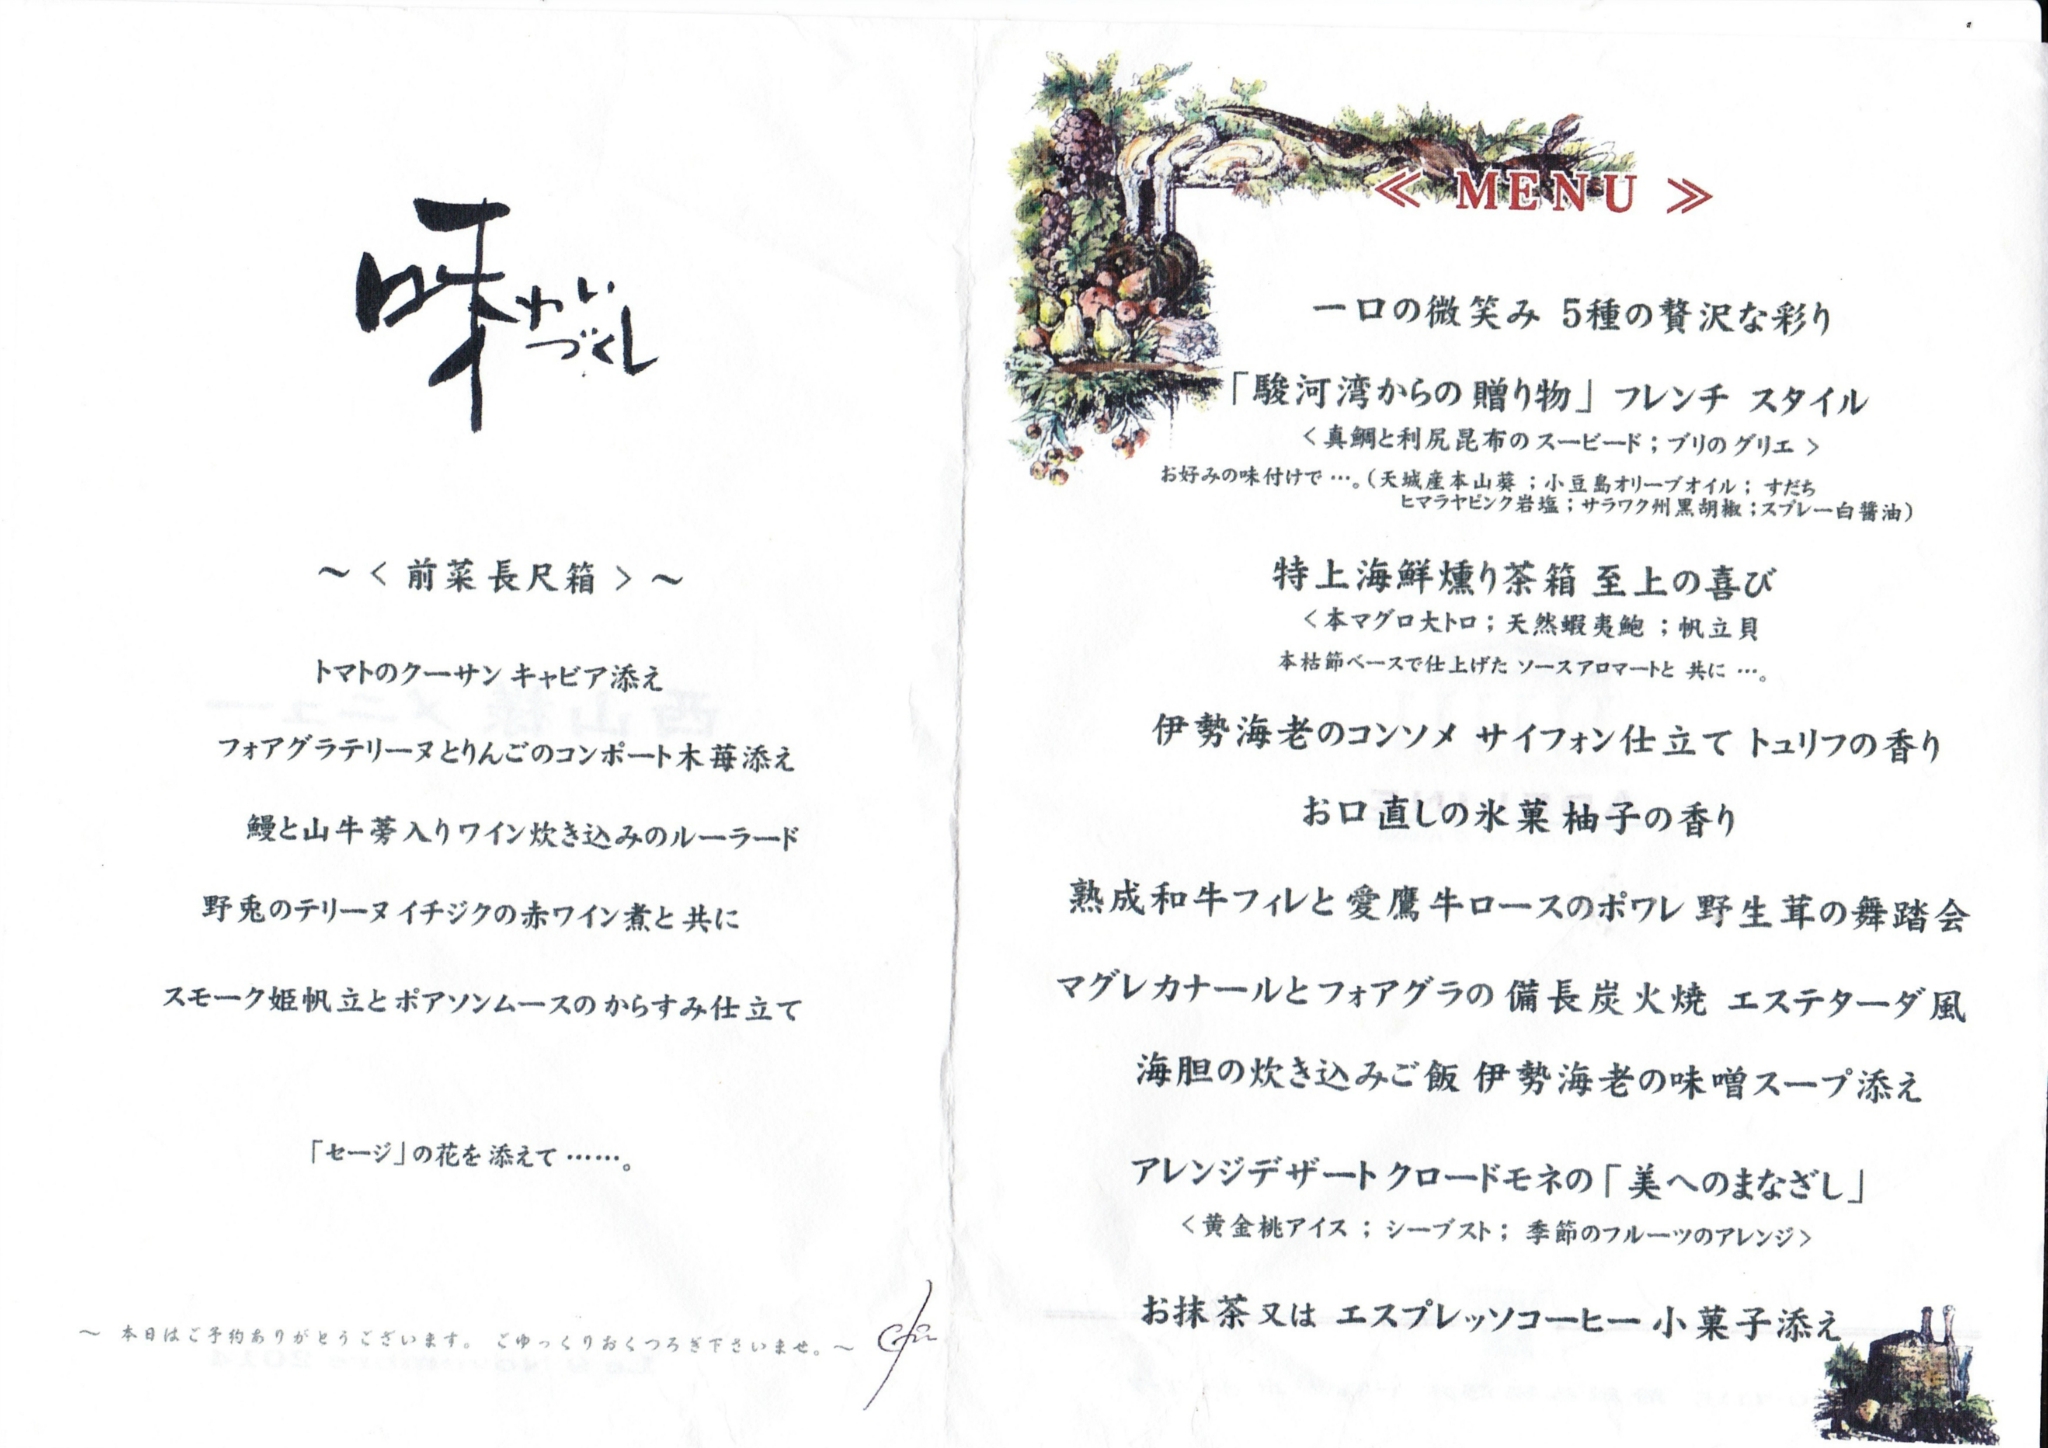 味わい
づくし
～＜前菜長尺箱＞～
トマトのクーサン キャビア添え
フォアグラテリーヌとりんごのコンポート木苺添え
鰻と山牛蒡入りワイン炊き込みのルーラード
野兎のテリーヌイチジクの赤ワイン煮と共に
スモーク姫帆立とポアソンムースのからすみ仕立て
「セージ」の花を添えて……。
～ 本日はご予約ありがとうございます。 ごゆっくりおくつろぎ下さいませ。～
≪ MENU ≫
一口の微笑み 5種の贅沢な彩り
「駿河湾からの贈り物」 フレンチ スタイル
＜真鯛と利尻昆布のスービード；ブリのグリエ＞
お好みの味付けで…。（天城産本山葵；小豆島オリーブオイル；すだち
ヒマラヤピンク岩塩；サラワク州黒胡椒；スプレー白醤油）
特上海鮮燻り茶箱 至上の喜び
＜本マグロ大トロ；天然蝦夷鮑；帆立貝
本枯節ベースで仕上げた ソースアロマートと 共に…。
伊勢海老のコンソメ サイフォン仕立て トュリフの香り
お口直しの氷菓 柚子の香り
熟成和牛フィレと愛鷹牛ロースのポワレ 野生茸の舞踏会
マグレカナールとフォアグラの備長炭火焼 エステターダ風
海胆の炊き込みご飯 伊勢海老の味噌スープ添え
アレンジデザート クロードモネの「美へのまなざし」
＜黄金桃アイス；シーブスト；季節のフルーツのアレンジ＞
お抹茶又は エスプレッソコーヒー 小菓子添え